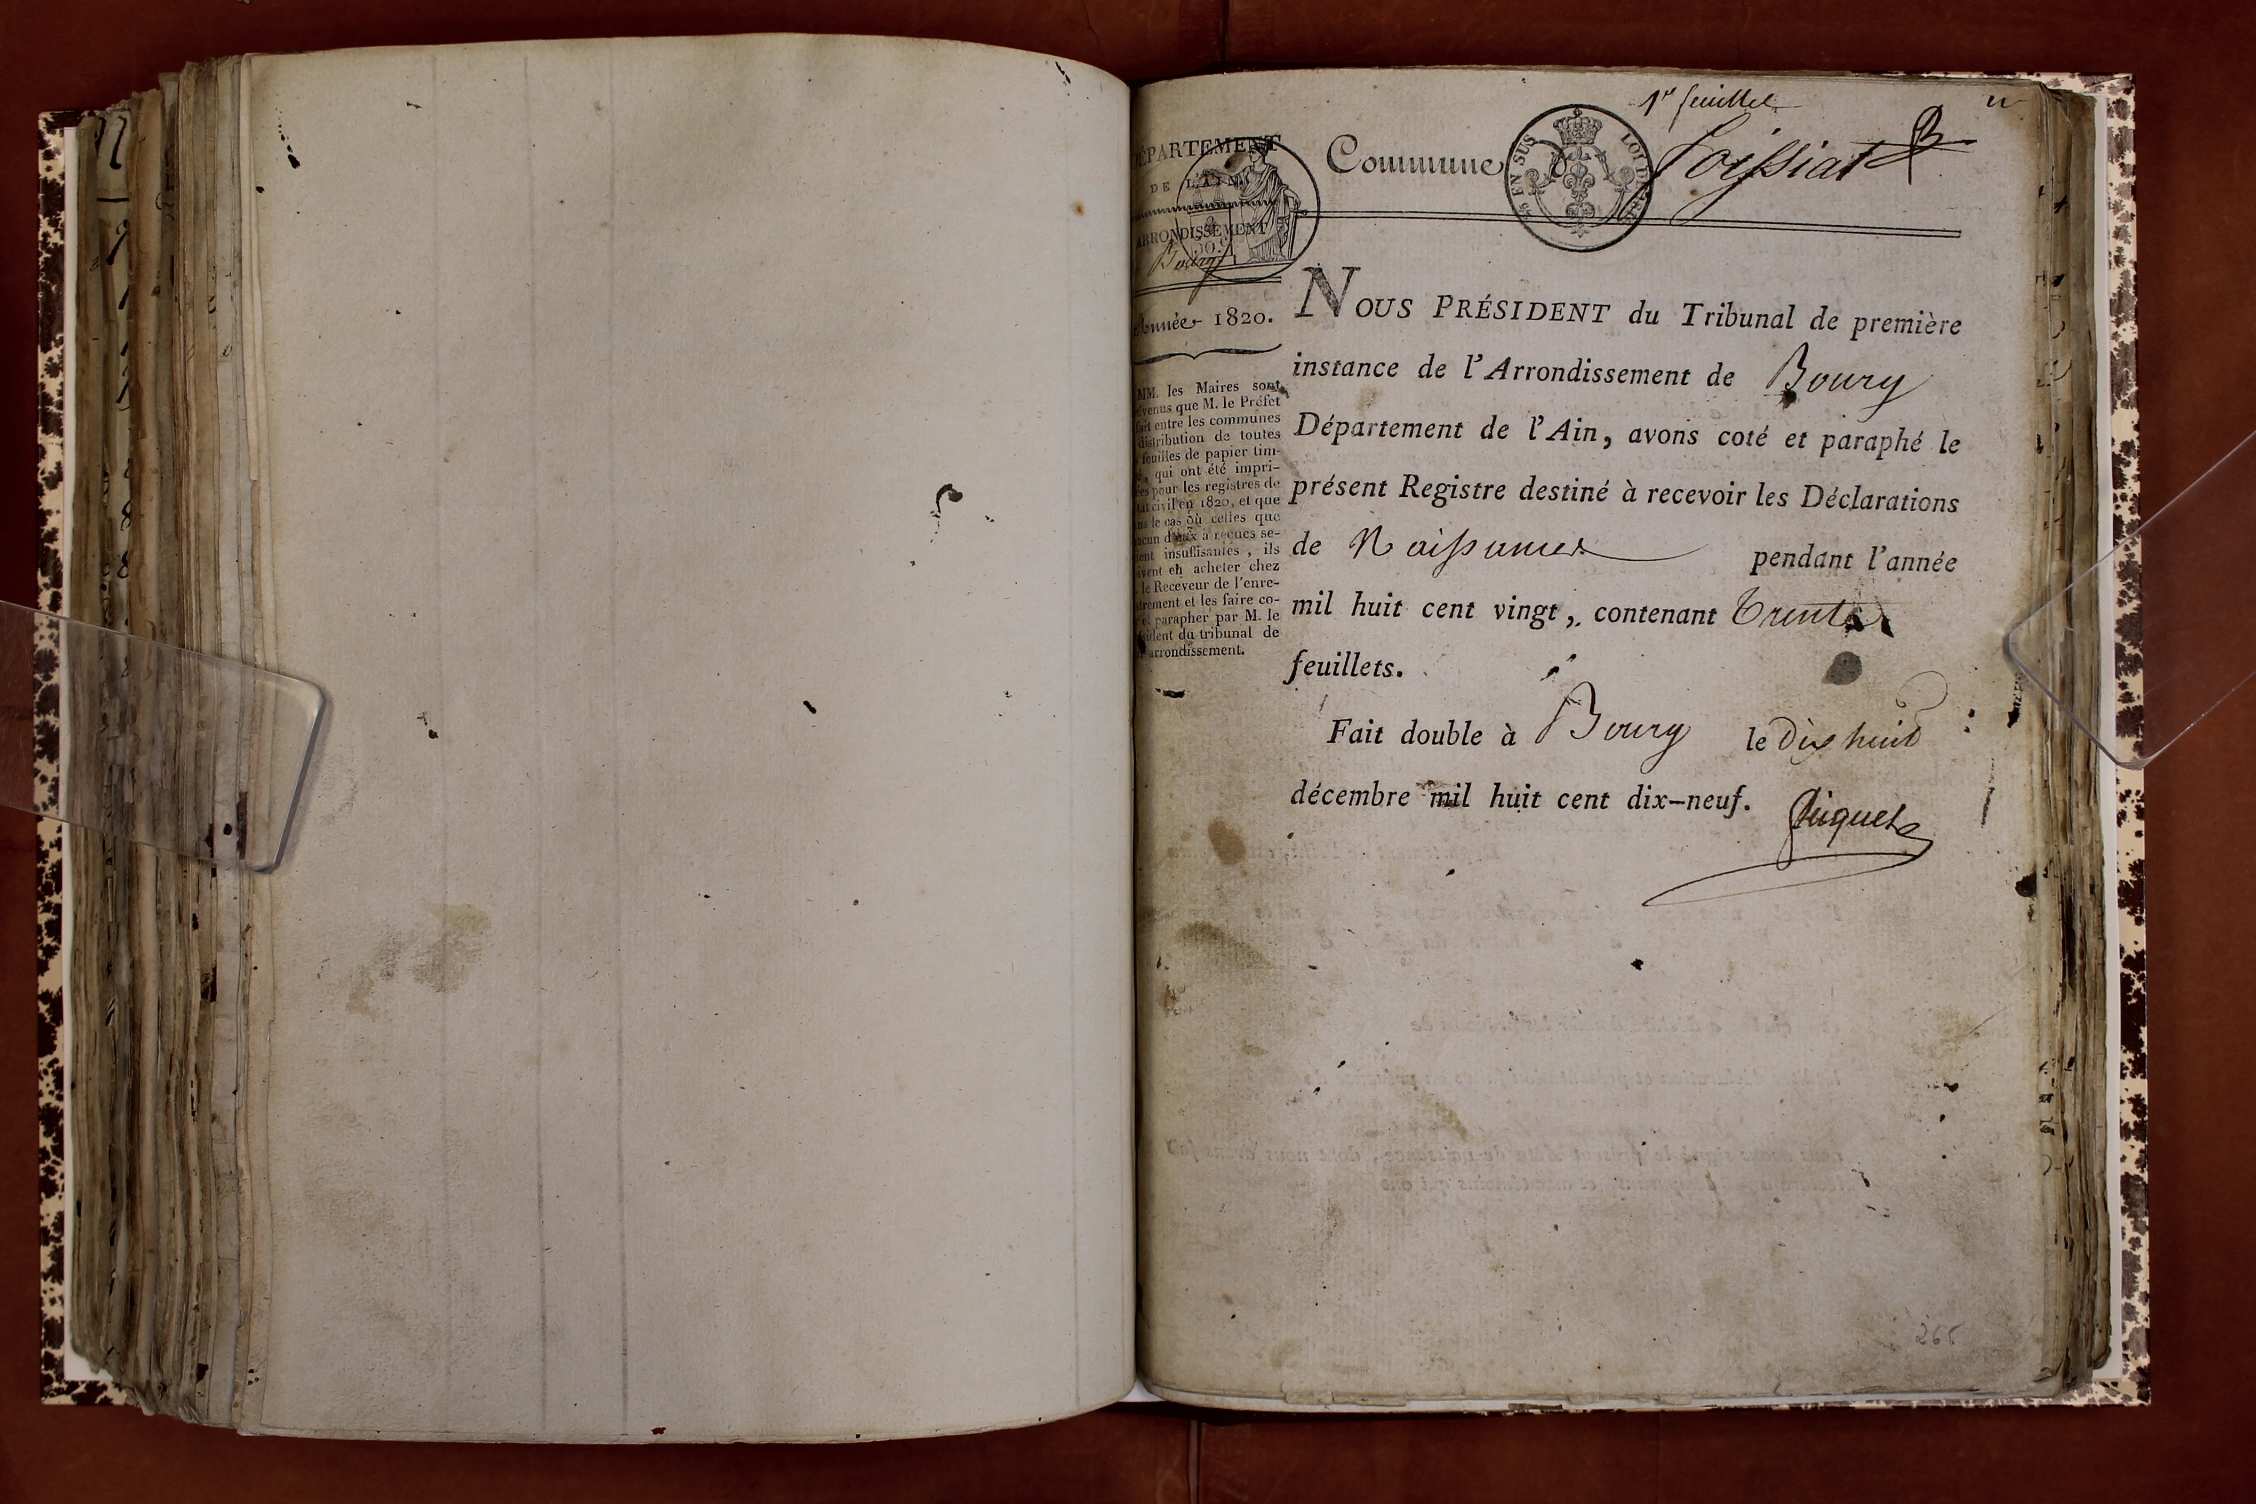 1r feuillet
DÉPARTEMENT
DE L'AIN
ARRONDISSEMENT
Bourg
Commune de Foissiat
EN SUS LOI DE
Année 1820.
MM. les Maires sont
prévenus que M. le Préfet
fait entre les communes
distribution de toutes
feuilles de papier tim-
qui ont été impri-
pour les registres de
civil en 1820, et que
le cas où celles que
d'eux a reçues se-
insuffisantes, ils
en acheter chez
le Receveur de l'enre-
et les faire co-
parapher par M. le
du tribunal de
arrondissement.
NOUS PRÉSIDENT du Tribunal de première
instance de l'Arrondissement de Bourg
Département de l'Ain, avons coté et paraphé le
présent Registre destiné à recevoir les Déclarations
de Naissances pendant l'année
mil huit cent vingt, contenant Trente
feuillets.
Fait double à Bourg le Dix huit
décembre mil huit cent dix-neuf.